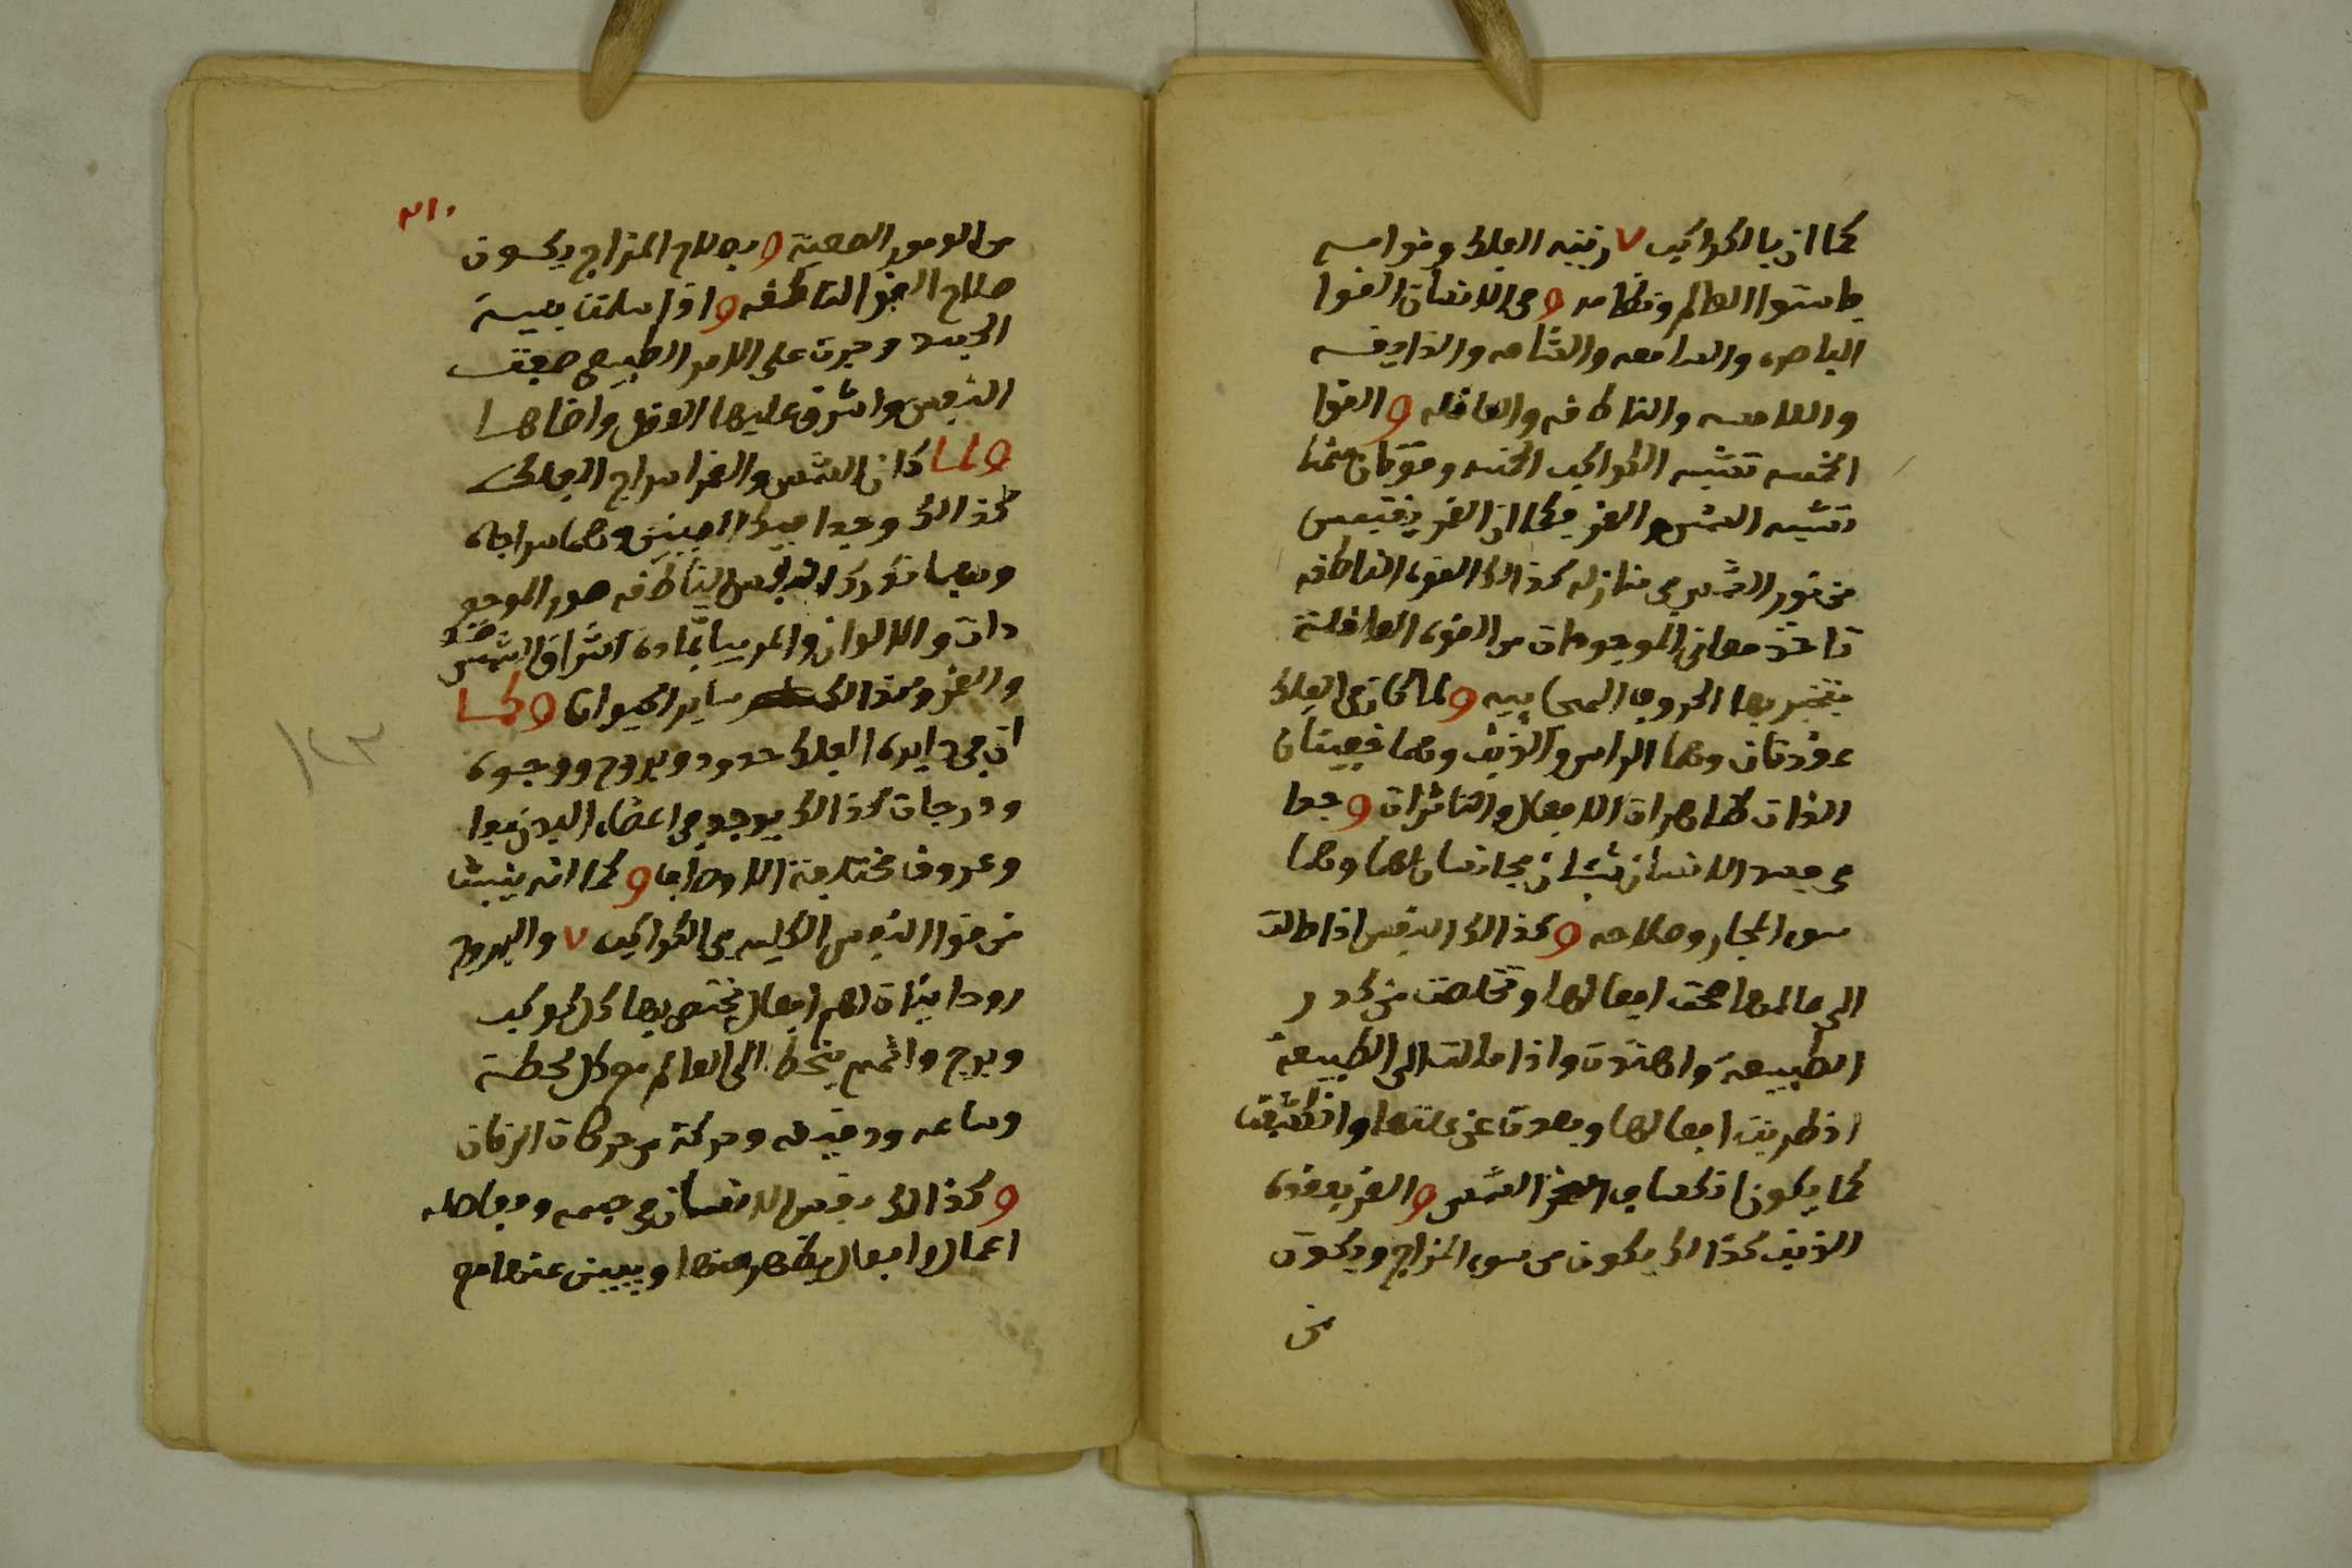 كما ان بالكواكب ٧ زينه الفلك وقوامه
واستوا العالم ونظامه و فى الانسان القوا
الباصره والسامعه والشامه والذايقه
واللامسه والناطقه والعاقله و القوا
الخمسه تشبه الكواكب الخمسه وقوتان منها
تشبه الشمس والقمر فكما ان القمر يقتبس
من نور الشمس فى منازله كذالك القوه الناطقه
تاخذ معانى الموجودات من القوه العاقلة
فتخبر بها الحروف الهجاييه و لما كان فى الفلك
عقدتان وهما الراس والذنب وهما خفيتان
الذات ظاهرات الافعال والتاثيرات و جدا
فى جسد الانسان شيان مجانسان لهما وهما
سوء المجاز وصلاحه و كذالك النفس اذا مالت
الى عالمها صحت افعالها وتخلصت من كدر
الطبيعة واهتدت واذا مالت الى الطبيعة
اضطربت افعالها وبعدت عن علتها وانكسفت
كما يكون انكساف الشمس و القمر بعقده
الذنب كذالك يكون من سوء المزاج ويكون
من
٢١٠
من الامور الصعبة و بصلاح المزاج يكون
صلاح القوا الناطقه و اذا سلمت بنية
الجسد وجرت على الامر الطبيعى صفت
النفس واشرق عليها العقل واضاها
و لما كان الشمس والقمر سراج الفلك
كذالك وجدا فيك العينين وهما سراجاه
وبهما تدرك النفس الناطقه صور الموجو
دات والالوان والمرييات بماده اشراق الشمس
والقمر وكذالك ساير الحيوان و كما
ان فى دايره الفلك حدود وبروج ووجوه
ودرجات كذالك يوجد فى اعضاء البدن
وعروق مختلفة الاوضاع و كما انه ينبث
من قوا النفس الكليه فى الكواكب ٧ والبروج
روحانيات لهم افعال يختص بها كل كوكب
وبرج وانهم ينحط الى العالم مع كل لحظة
وساعه ودقيقه وحركة من حركات الزمان
و كذالك نفس الانسان فى جسمه ومفاصله
اعمال وافعال يظهر منها ويبين عنها مع
١٢٣